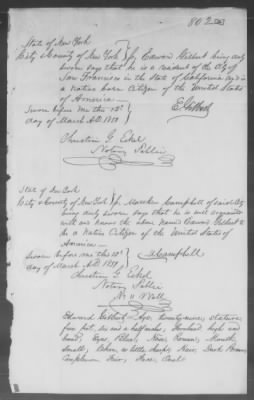 802
State of New York
City & County of New York } ss Edward Gilbert being duly
sworn says that he is a resident of the City of
San Francisco in the State of California and is
a native born Citizen of the United States
of America —
Sworn before me this 15th
day of March A.D. 1851
E Gilbert
Christian G Eckel
Notary Public
State of New York
City & County of New York } ss Malcolm Campbell of said City
being duly sworn says that he is well acquainted
with and knows the above named Edward Gilbert to
be a Native Citizen of the United States of
America —
Sworn before me this 15th
day of March A.D. 1851
M Campbell
Christian G Eckel
Notary Public
Wall
Edward Gilbert — Age, twenty nine, stature,
five feet, six and a half inches, Forehead high and
broad, Eyes, Blue, Nose, Roman, Mouth,
Small, Chin, a little sharp, Hair, Dark Brown,
Complexion Fair, Face, Oval